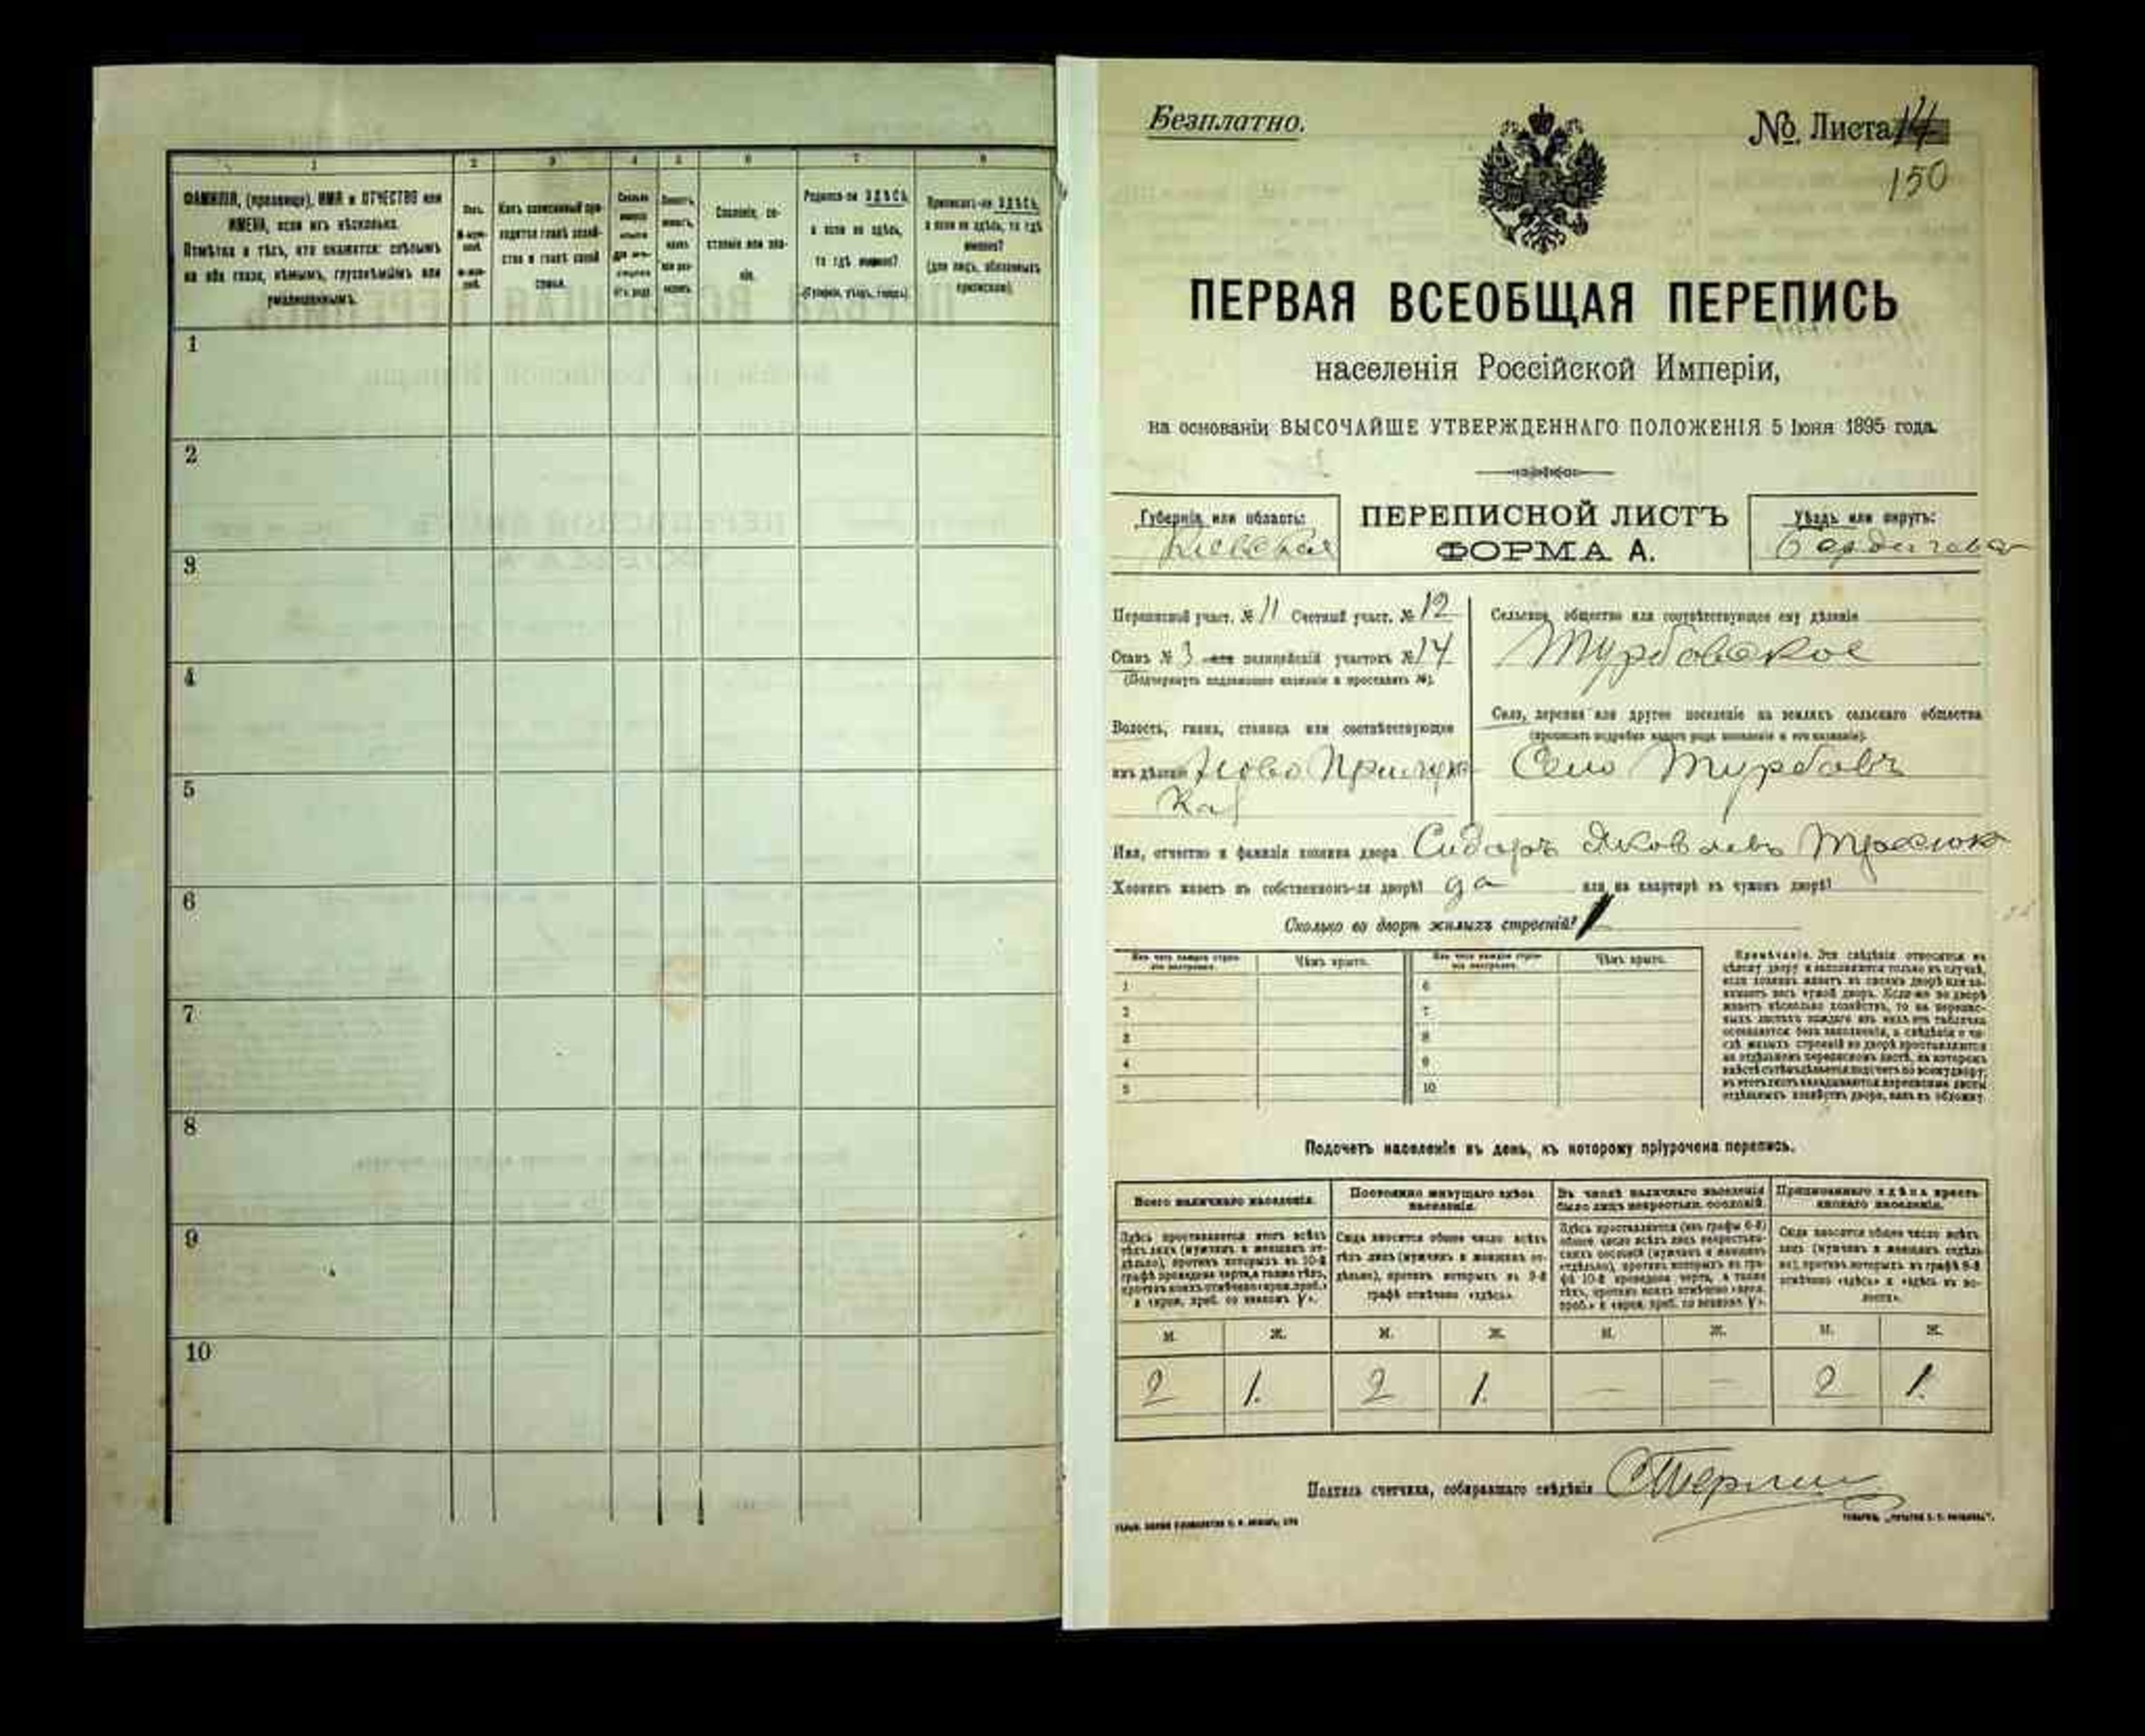 1 2 3 4 5 6 7 8
ФАМИЛІЯ, (прозвище), ИМЯ и ОТЧЕСТВО или
ИМЕНА, если ихъ нѣсколько.
Отмѣтка о тѣхъ, кто окажется: слѣпымъ
на оба глаза, нѣмымъ, глухонѣмымъ или
умалишеннымъ.
Полъ.
Какъ записанный при-
ходится главѣ хозяй-
ства и главѣ своей
семьи.
Сословіе, со-
стояніе или зва-
ніе.
Родился-ли ЗДѢСЬ,
а если не здѣсь,
то гдѣ именно?
(Губернія, уѣздъ, городъ)
Приписанъ-ли ЗДѢСЬ,
а если не здѣсь, то гдѣ
именно?
(для лицъ, обязанныхъ
припискою).
1
2
3
4
5
6
7
8
9
10
Безплатно.
№ Листа 14
150
ПЕРВАЯ ВСЕОБЩАЯ ПЕРЕПИСЬ
населенія Россійской Имперіи,
на основаніи ВЫСОЧАЙШЕ УТВЕРЖДЕННАГО ПОЛОЖЕНІЯ 5 Іюня 1895 года.
Губернія или область:
Кіевская
ПЕРЕПИСНОЙ ЛИСТЪ
ФОРМА А.
Уѣздъ или округъ:
Переписной участ. № 11 Счетный участ. № 12
Станъ № 3 или полицейскій участокъ № 14
(Подчеркнуть подлежащее названіе и проставить №).
Волость, гмина, станица или соотвѣтствующее
имъ дѣленіе Ново Прилук
кая
Сельское общество или соотвѣтствующее ему дѣленіе
Турбовское
Село, деревня или другое поселеніе на земляхъ сельскаго общества
(прописать подробно какого рода поселеніе и его названіе).
Село Турбовъ
Имя, отчество и фамилія хозяина двора Сидоръ Яковлевъ
Хозяинъ живетъ въ собственномъ-ли дворѣ? да или на квартирѣ въ чужомъ дворѣ?
Сколько во дворѣ жилыхъ строеній?
Изъ чего каждое строе-
ніе построено.
Чѣмъ крыто.
Изъ чего каждое строе-
ніе построено.
Чѣмъ крыто.
1 6
2 7
3 8
4 9
5 10
Примѣчаніе. Эти свѣдѣнія относятся къ
цѣлому двору и заполняются только въ случаѣ,
если хозяинъ живетъ въ своемъ дворѣ или за-
нимаетъ весь чужой дворъ. Если-же во дворѣ
живетъ нѣсколько хозяйствъ, то на перепис-
ныхъ листахъ каждаго изъ нихъ эта табличка
оставляется безъ заполненія, а свѣдѣнія о чи-
слѣ жилыхъ строеній во дворѣ проставляются
на отдѣльномъ переписномъ листѣ, на которомъ
вмѣстѣ съ тѣмъ дѣлается подсчетъ по всему двору;
въ этотъ листъ вкладываются переписные листы
отдѣльныхъ хозяйствъ двора, какъ въ обложку.
Подсчетъ населенія въ день, къ которому пріурочена перепись.
Всего наличнаго населенія.
Постоянно живущаго здѣсь
населенія.
Въ числѣ наличнаго населенія
было лицъ некрестьян. сословій.
Приписаннаго здѣсь кресть-
янскаго населенія.
Здѣсь проставляется итогъ всѣхъ
тѣхъ лицъ (мужчинъ и женщинъ от-
дѣльно), противъ которыхъ въ 10-й
графѣ проведена черта, а также тѣхъ,
противъ коихъ отмѣчено «врем. преб.»
и «врем. преб. со знакомъ V».
Сюда вносится общее число всѣхъ
тѣхъ лицъ (мужчинъ и женщинъ от-
дѣльно), противъ которыхъ въ 9-й
графѣ отмѣчено «здѣсь».
Здѣсь проставляется (изъ графы 6-й)
общее число всѣхъ лицъ некрестьян-
скихъ сословій (мужчинъ и женщинъ
отдѣльно), противъ которыхъ въ гра-
фѣ 10-й проведена черта, а также
тѣхъ, противъ коихъ отмѣчено «врем.
преб.» и «врем. преб. со знакомъ V».
Сюда вносится общее число всѣхъ
лицъ (мужчинъ и женщинъ отдѣль-
но), противъ которыхъ въ графѣ 8-й
отмѣчено «здѣсь» и «здѣсь въ во-
лости».
М. Ж. М. Ж. М. Ж. М. Ж.
2 1. 2 1. — — 2 1.
Подпись счетчика, собиравшаго свѣдѣнія